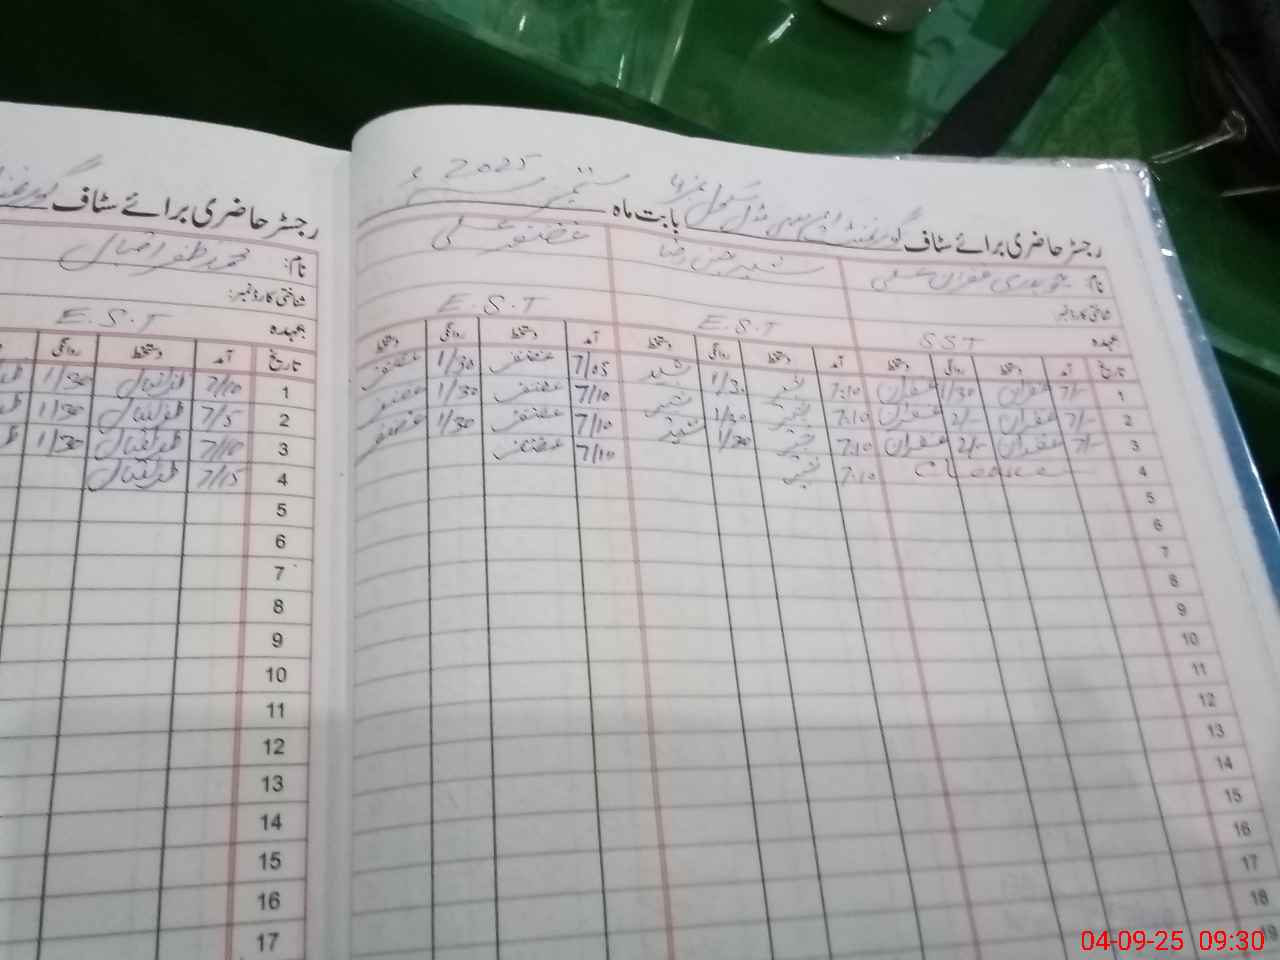 رجسٹر حاضری برائے سٹاف گورنمنٹ ایم سی مڈل سکول نمبر بابت ماہ ستمبر 2025ء
نام: چوہدری غفران علی
شبیر حسین رضا
غضنفر علی
شناختی کارڈ نمبر:
عہدہ SST
E.S.T
E.S.T
تاریخ آمد دستخط روانگی دستخط آمد دستخط روانگی دستخط آمد دستخط روانگی دستخط
1 7/- غفران 1/30 غفران 7:10 شبیر 1/30 شبیر 7/05 غضنفر 1/30 غضنفر
2 7/- غفران 2/- غفران 7:10 شبیر 1/30 شبیر 7/10 غضنفر 1/30 غضنفر
3 7/- غفران 2/- غفران 7:10 شبیر 1/30 شبیر 7/10 غضنفر 1/30 غضنفر
4 C leave 7:10 شبیر 7/10 غضنفر
5
6
7
8
9
10
11
12
13
14
15
16
17
18
19
رجسٹر حاضری برائے سٹاف
نام: محمد ظفر اقبال
شناختی کارڈ نمبر:
عہدہ E.S.T
تاریخ آمد دستخط روانگی
1 7/10 ظفر اقبال 1/30
2 7/5 ظفر اقبال 1/30
3 7/10 ظفر اقبال 1/30
4 7/15 ظفر اقبال
5
6
7
8
9
10
11
12
13
14
15
16
17
04-09-25 09:30